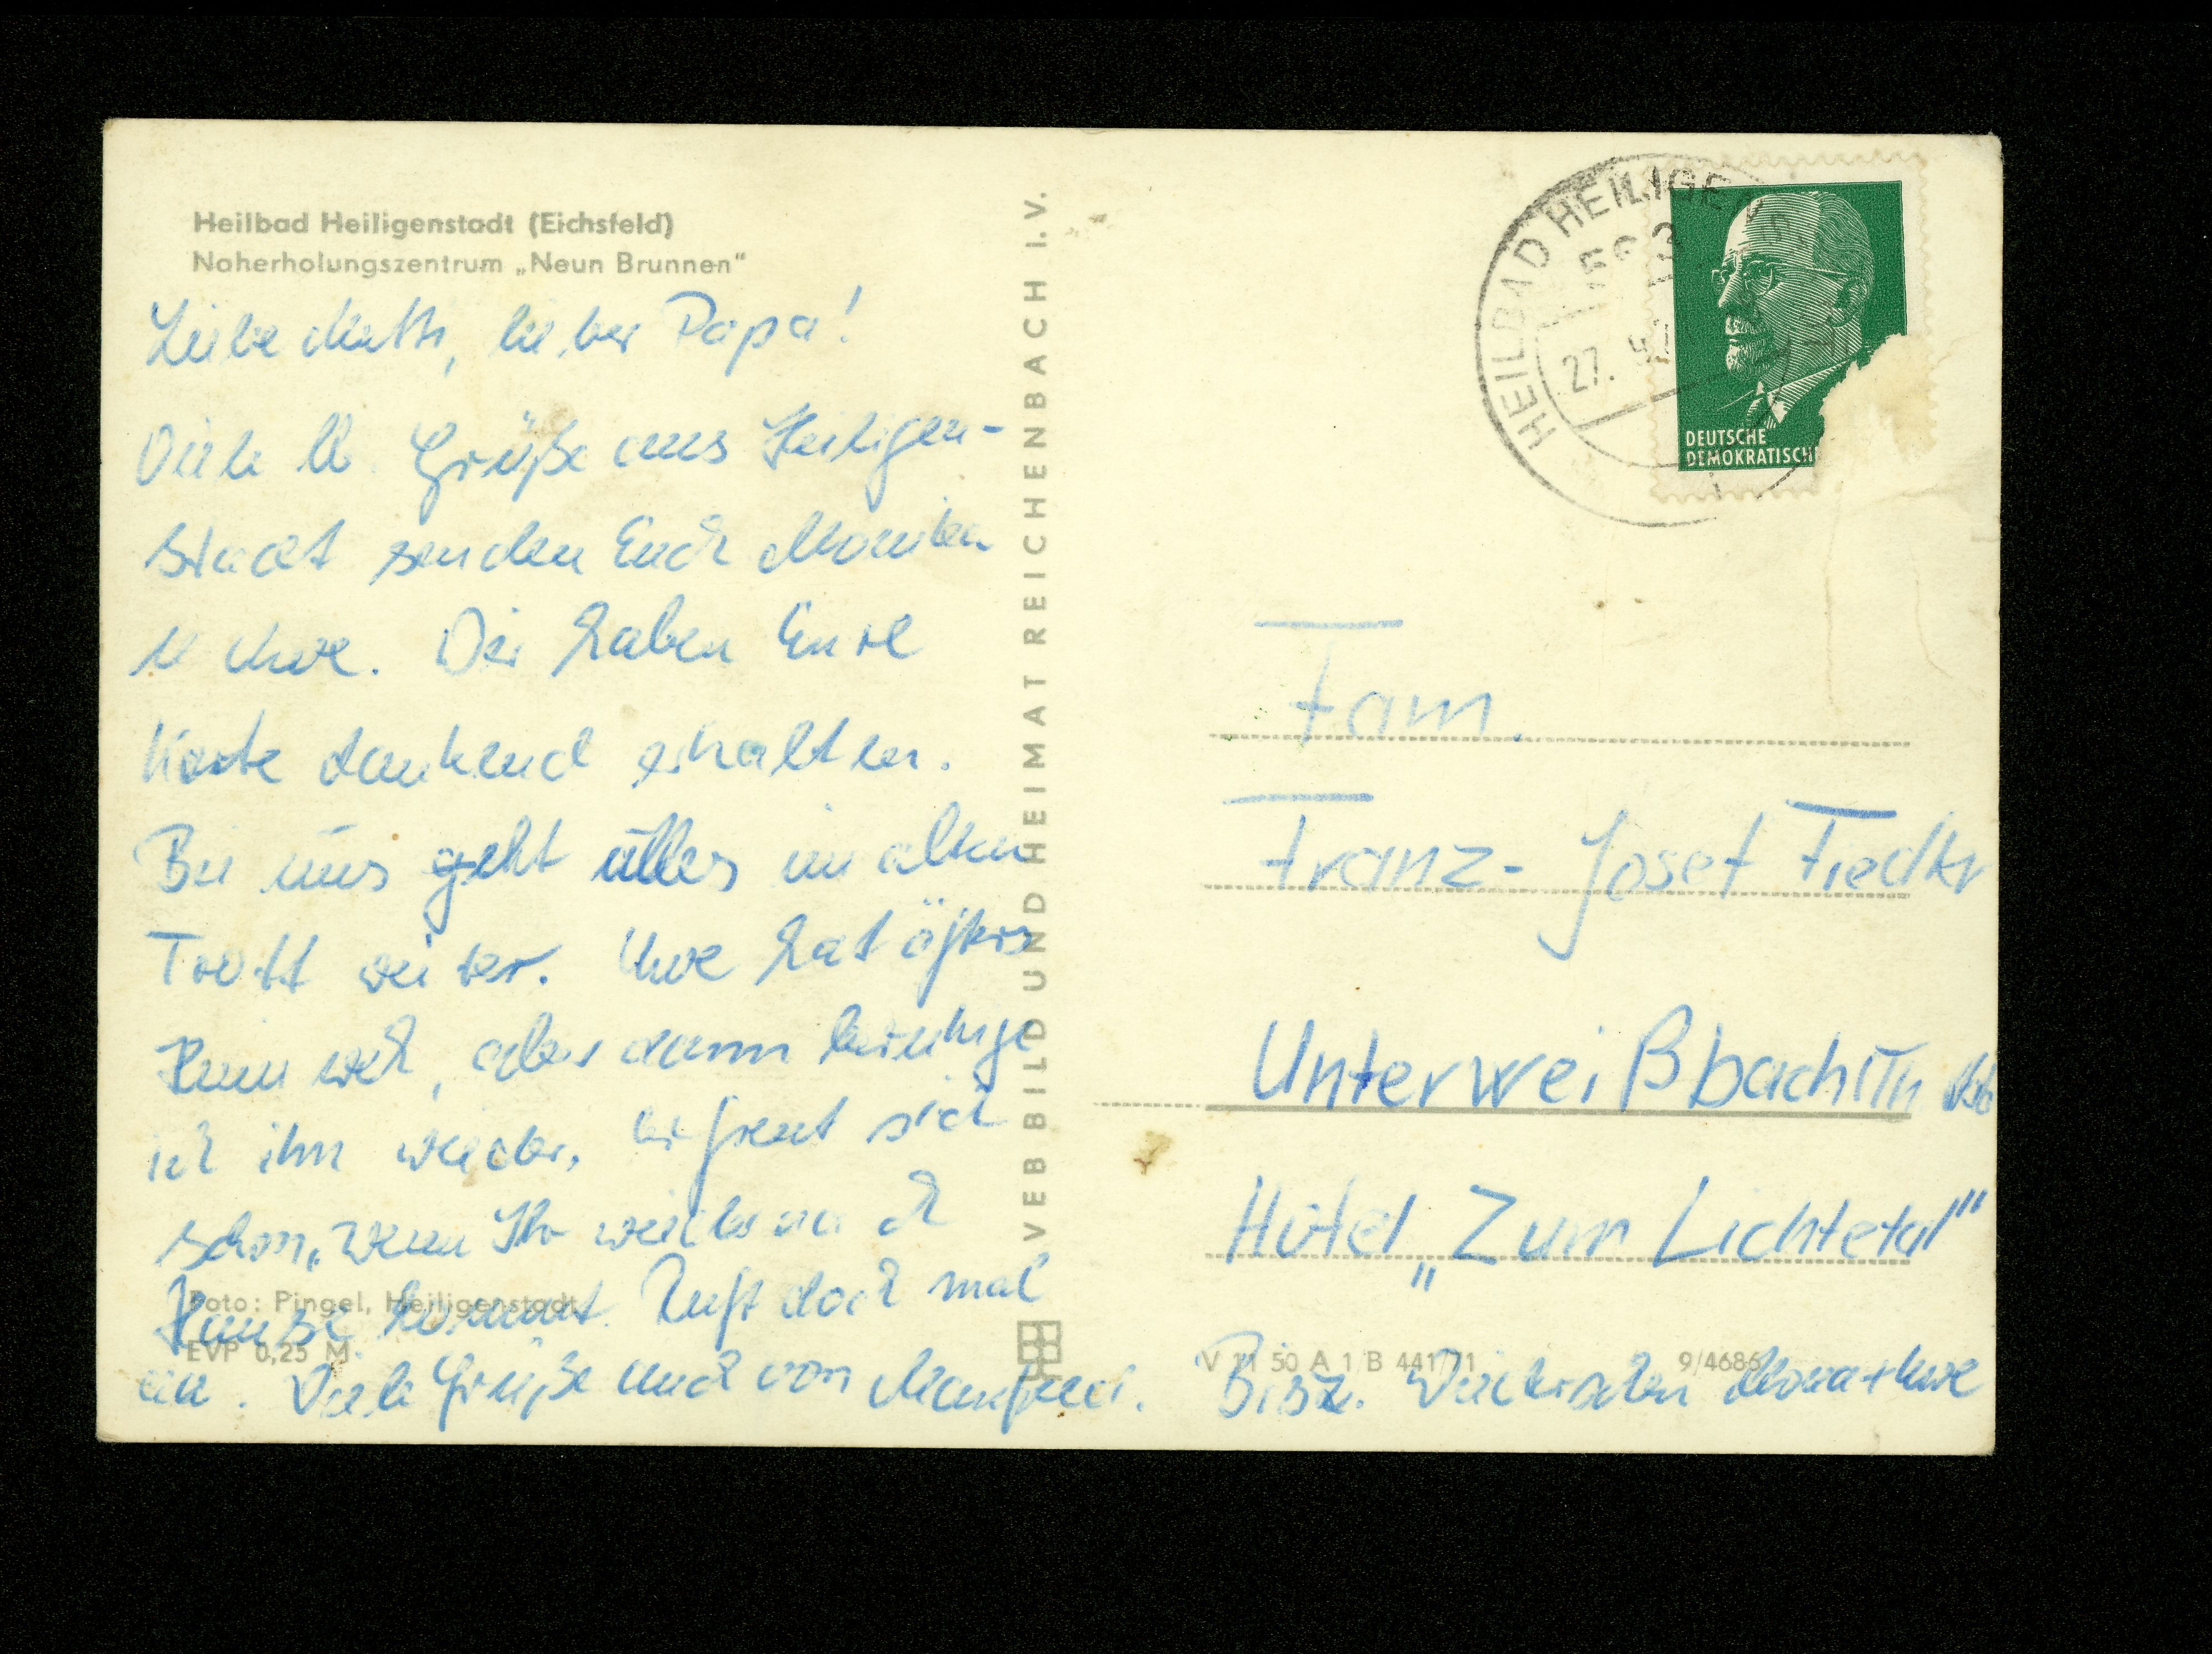 Heilbad Heiligenstadt (Eichsfeld)
Naherholungszentrum „Neun Brunnen“
Liebe Mutti, lieber Papa!
Viele lb. Grüße aus Heiligen-
stadt senden Euch Monika
u Uwe. Wir haben Eure
Karte dankend erhalten.
Bei uns geht alles im alten
Trott weiter. Uwe hat öfters
Heimweh, aber dann beruhige
ich ihn wieder. Er freut sich
schon, wenn Ihr wieder nach
Hause kommt. Ruft doch mal
an. Viele Grüße auch von Manfred.
Foto: Pingel, Heiligenstadt
EVP 0,25 M
VEB BILD UND HEIMAT REICHENBACH I. V.
HEILBAD HEILIGE
27.
DEUTSCHE
DEMOKRATISCH
Fam.
Franz-Josef Fiedler
Unterweißbach/Th
Hotel „Zum Lichtetal“
V 11 50 A 1/B 441/71 9/4686
Bis z. Wiedersehen Mona + Uwe